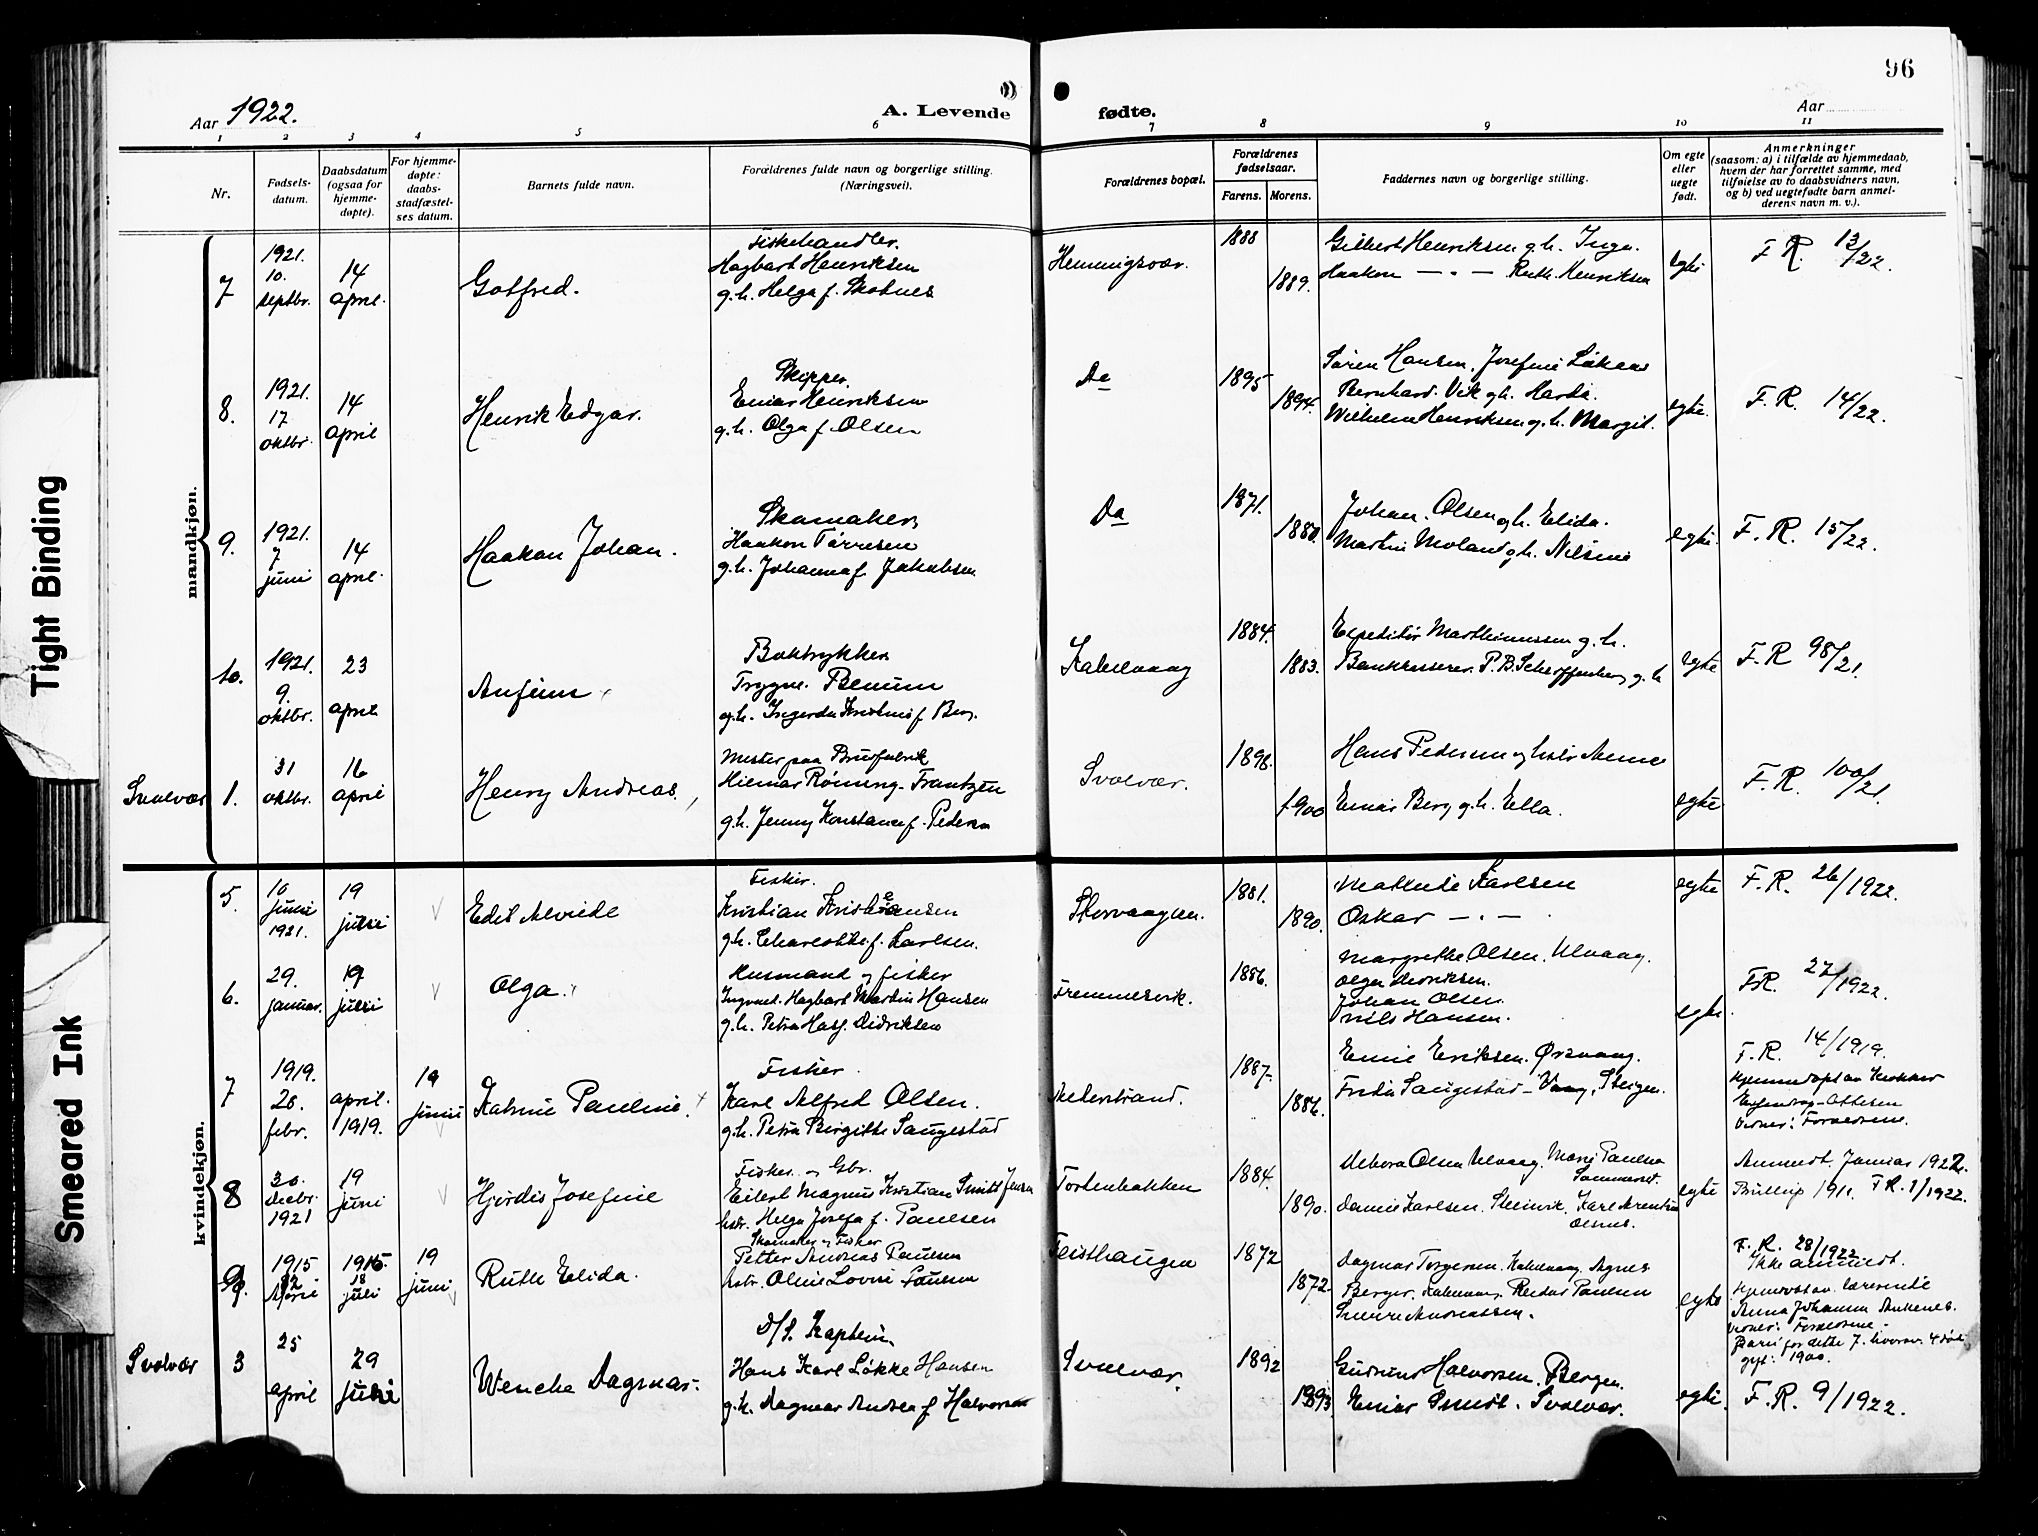 96
Aar 1922.
A. Levende
fødte.
Aar
1 2 3 4 5 6 7 8 9 10 11
Nr.
Fødsels-
datum.
Daabsdatum
(ogsaa for
hjemme-
døpte).
For hjemme-
døpte:
daabs-
stadfæstel-
ses datum.
Barnets fulde navn.
Forældrenes fulde navn og borgerlige stilling.
(Næringsvei).
Forældrenes bopæl.
Forældrenes
fødselsaar.
Farens. Morens.
Faddernes navn og borgerlige stilling.
Om egte
eller
uegte
født.
Anmerkninger
(saasom: a) i tilfælde av hjemmedaab,
hvem der har forrettet samme, med
tilføielse av to daabsvidners navn,
og b) ved uegtefødte barn anmel-
derens navn m. v.).
mandkjøn.
7
1921.
10.
septbr.
14
april.
Gotfred.
Fiskehandler.
Hagbart Henriksen
g.h. Helga f. Skotnes
Henningsvær.
1888
1889.
Gilbert Henriksen g.h. Inga.
Haakon — " — Ruth Henriksen
egte
F. R. 13/22.
8.
1921.
17
oktbr.
14
april
Henrik Edgar.
Skipper.
Einar Henriksen
g.h. Olga f. Olsen
Do
1895
1894.
Søren Hansen, Josefine
Bernhard Vik g.h.
Wilhelm Henriksen g.h. Margit.
egte.
F. R. 14/22.
9.
1921.
7
juni
14
april.
Haakon Johan.
Skomaker
Haakon Tørresen
g.h. Johanna f. Jakobsen
Do
1871.
1880.
Johan Olsen g.h. Elida.
Martin Moland g.h. Nilsine
egte.
F. R. 15/22.
10.
1921.
9.
oktbr.
23
april
Anfinn
Boktrykker
Trygve
g.h. f. Berg.
Kabelvaag
1884.
1883.
Expeditør Marthinussen g.h.
Bankkasserer P. B. Scharffenberg g.h.
egte
F. R 98/21.
Svolvær 1.
31
oktbr.
16
april
Henry Andreas.
Mester paa Brusfabrik
Hilmar Røning Frantzen
g.h. Jenny Konstance f. Pedersen
Svolvær.
1898.
1900
Hans Pedersen og hstr Anna
Einar Berg g.h. Ella.
egte
F. R. 100/21.
kvindekjøn.
5.
10
juni
1921.
19
juni
Edit Alvilde
Fisker.
Kristian Kristiansen
g.h. Charlotte f. Karlsen.
Storvaagen.
1881.
1890.
Mathilde Karlsen
Oskar — " —
egte
F. R. 26/1922.
6.
29.
januar.
19
juni
Olga
Husmand og fisker
Ingvart Hagbart Martin Hansen
g.h. Petra Didriksen
Fremmesvik.
1886.
Margrethe Olsen, Ulvaag.
Olga Didriksen.
Johan Olsen.
Nils Hansen.
egte
F.R. 27/1922.
7
1919.
28.
febr.
april.
1919.
19
juni
Katrine Pauline.
Fisker.
Karl Alfred Olsen.
g.h. Petra Birgitte Saugestad
1887.
1886.
Emil Eriksen. Ørsvaag.
Frida Saugestad — Vaag, Steigen.
F. R. 14/1919.
Hjemmedøpt av Kirkker
Ottesen
Vidner: Forældrene.
8
30.
decbr.
1921
19
juni
Hjørdis Josefine
Fisker og Gbr.
Eilert Magnus Kristian Smith Jensen
hstr. Helga Josefa f. Paulsen
Tortenbakken
1884.
1890.
Debora Olsen Ulvaag. Marie Paulsen
Sommerset.
Karlsen. Steinvik, Karl
egte
Anmeldt. Januar 1922.
Brullup 1911. F.R. 1/1922.
9.
1915
12
1915.
18
juli
19
juni
Ruth Elida.
Skomaker og Fisker
Petter Andreas Paulsen
hstr. Oline Lovise Paulsen
Feisthaugen
1872
1872.
Dagmar Torgersen. Kabelvaag, Agnes
Berger. Kabelvaag. Reidar Paulsen
Andreassen.
egte
F. R. 28/1922.
Ikke anmeldt.
Hjemdøpt av lærerinde
Anna Johanna Ankenes.
Vidner: Forældrene.
Barn for dette 7. hvorav 4 død
gift: 1900.
Svolvær 3
25
april
29
juni
Wenche Dagmar.
D/S. Kaptein.
Hans Karl Løkke Hansen
g.h. Dagmar Andrea f. Halvorsen
Svolvær.
1892
1893
Gudrun Halvorsen. Bergen.
Einar Smidt. Svolvær.
egte.
F. R. 9/1922.
Tight Binding
Smeared Ink